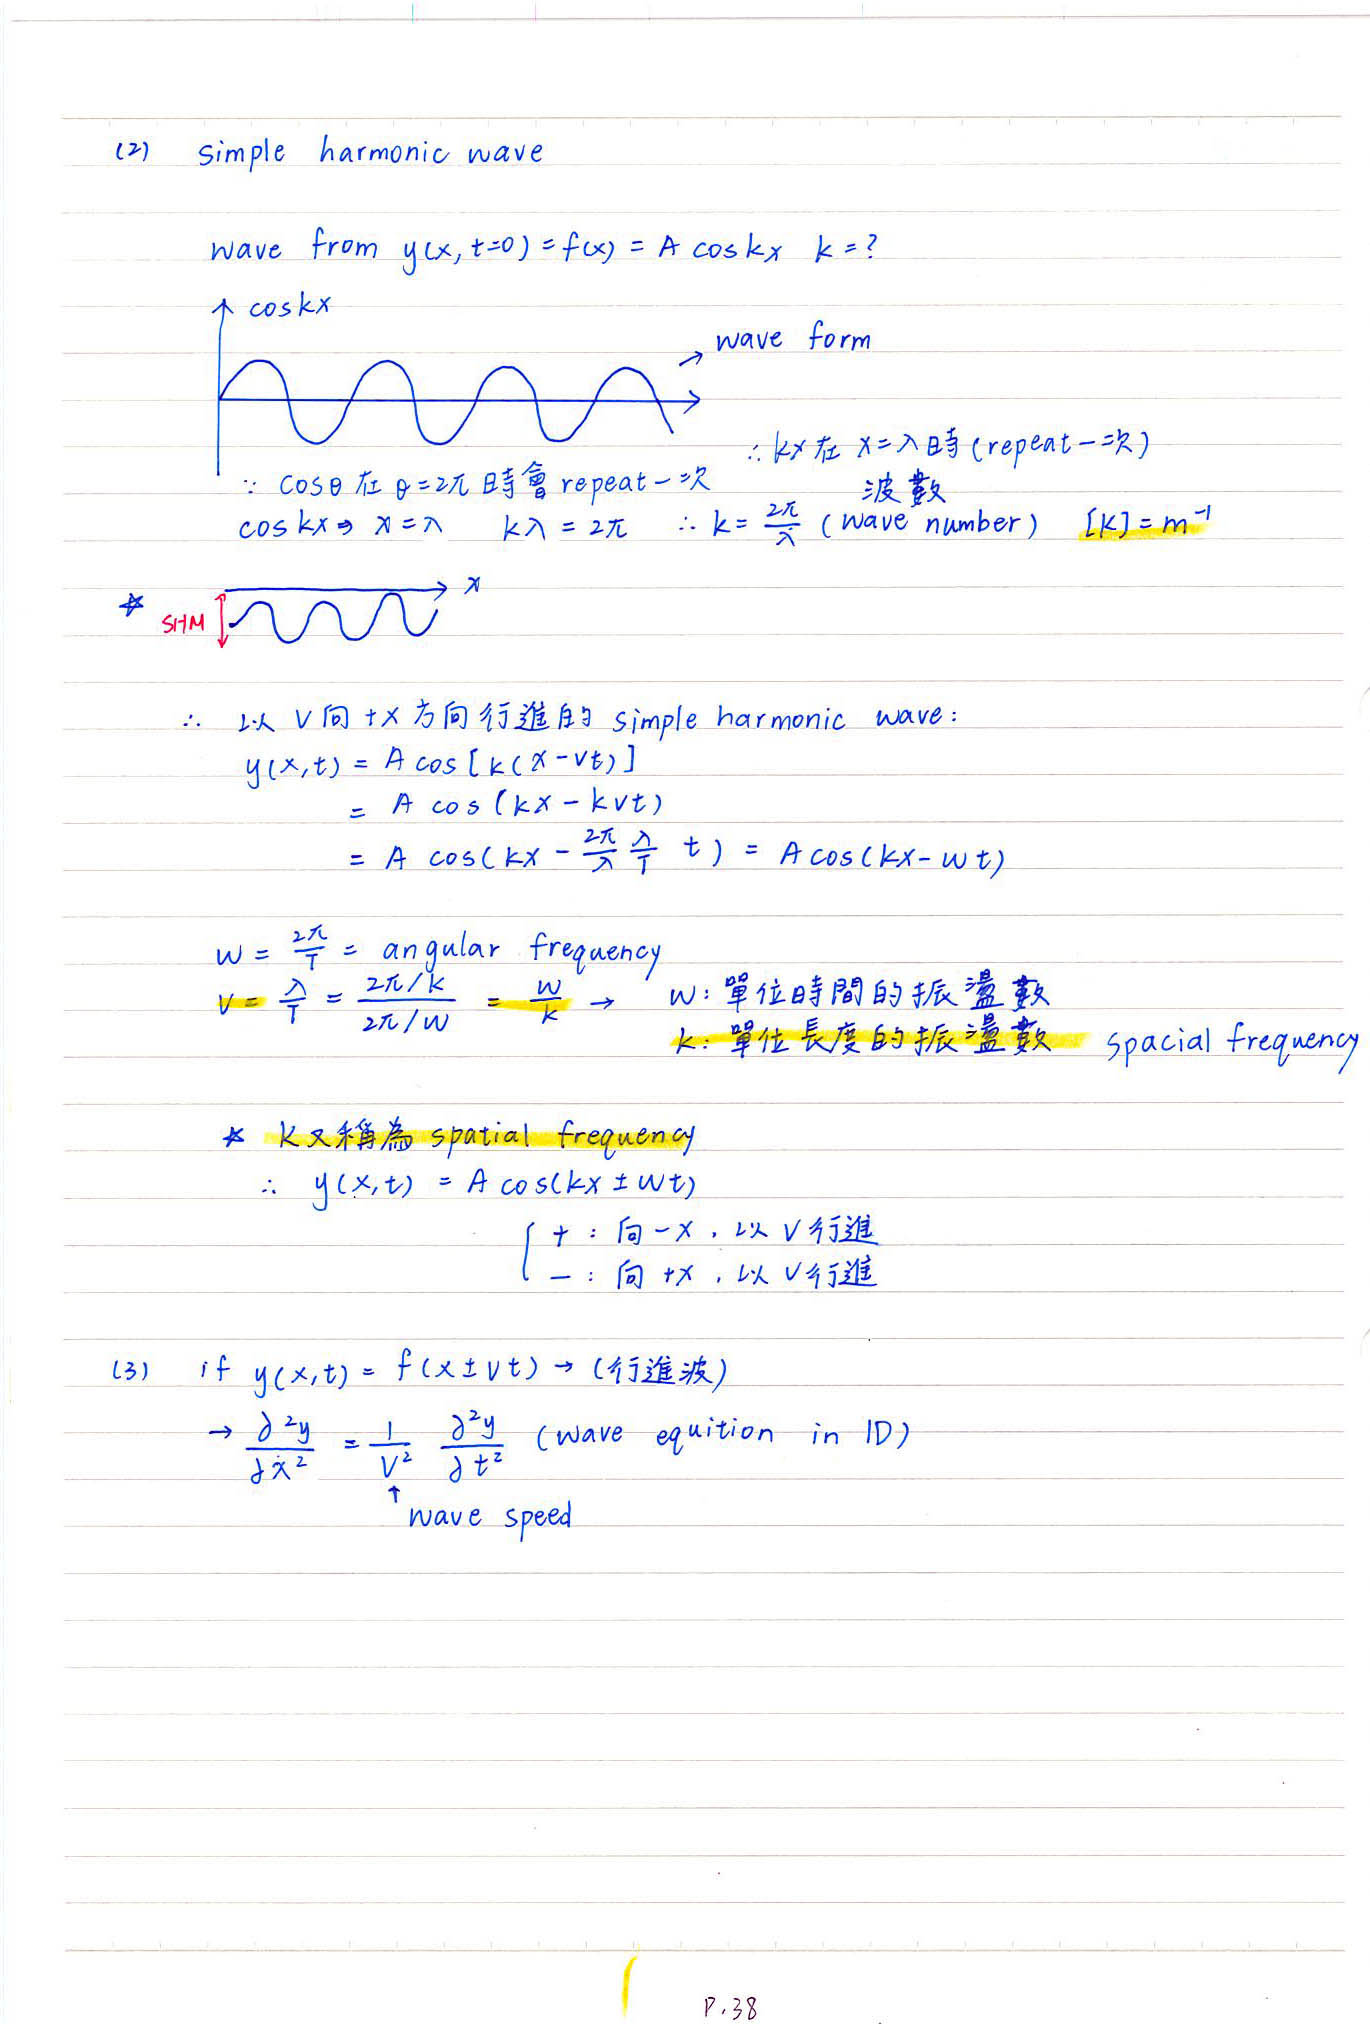 (2) simple harmonic wave
wave from y(x, t=0) = f(x) = A coskx k = ?
coskx
wave form
∴ kx 在 x = λ 時 (repeat 一次)
∵ cosθ 在 θ = 2π 時會 repeat 一次
波數
coskx ⇒ x = λ kλ = 2π ∴ k = 2π/λ (wave number) [K] = m⁻¹
☆ SHM x
∴ 以 V 向 +x 方向行進的 simple harmonic wave:
y(x,t) = A cos [k(x-vt)]
= A cos (kx - kvt)
= A cos(kx - 2π/λ λ/T t) = A cos(kx - wt)
w = 2π/T = angular frequency
v = λ/T = (2π/k)/(2π/w) = w/k → w: 單位時間的振盪數
k: 單位長度的振盪數 spacial frequency
☆ k 又稱為 spatial frequency
∴ y(x,t) = A cos(kx ± wt)
{ + : 向 -x, 以 V 行進
- : 向 +x, 以 V 行進
(3) if y(x,t) = f(x ± vt) → (行進波)
→ ∂²y/∂x² = 1/V² ∂²y/∂t² (wave equition in 1D)
↑ wave speed
P.38